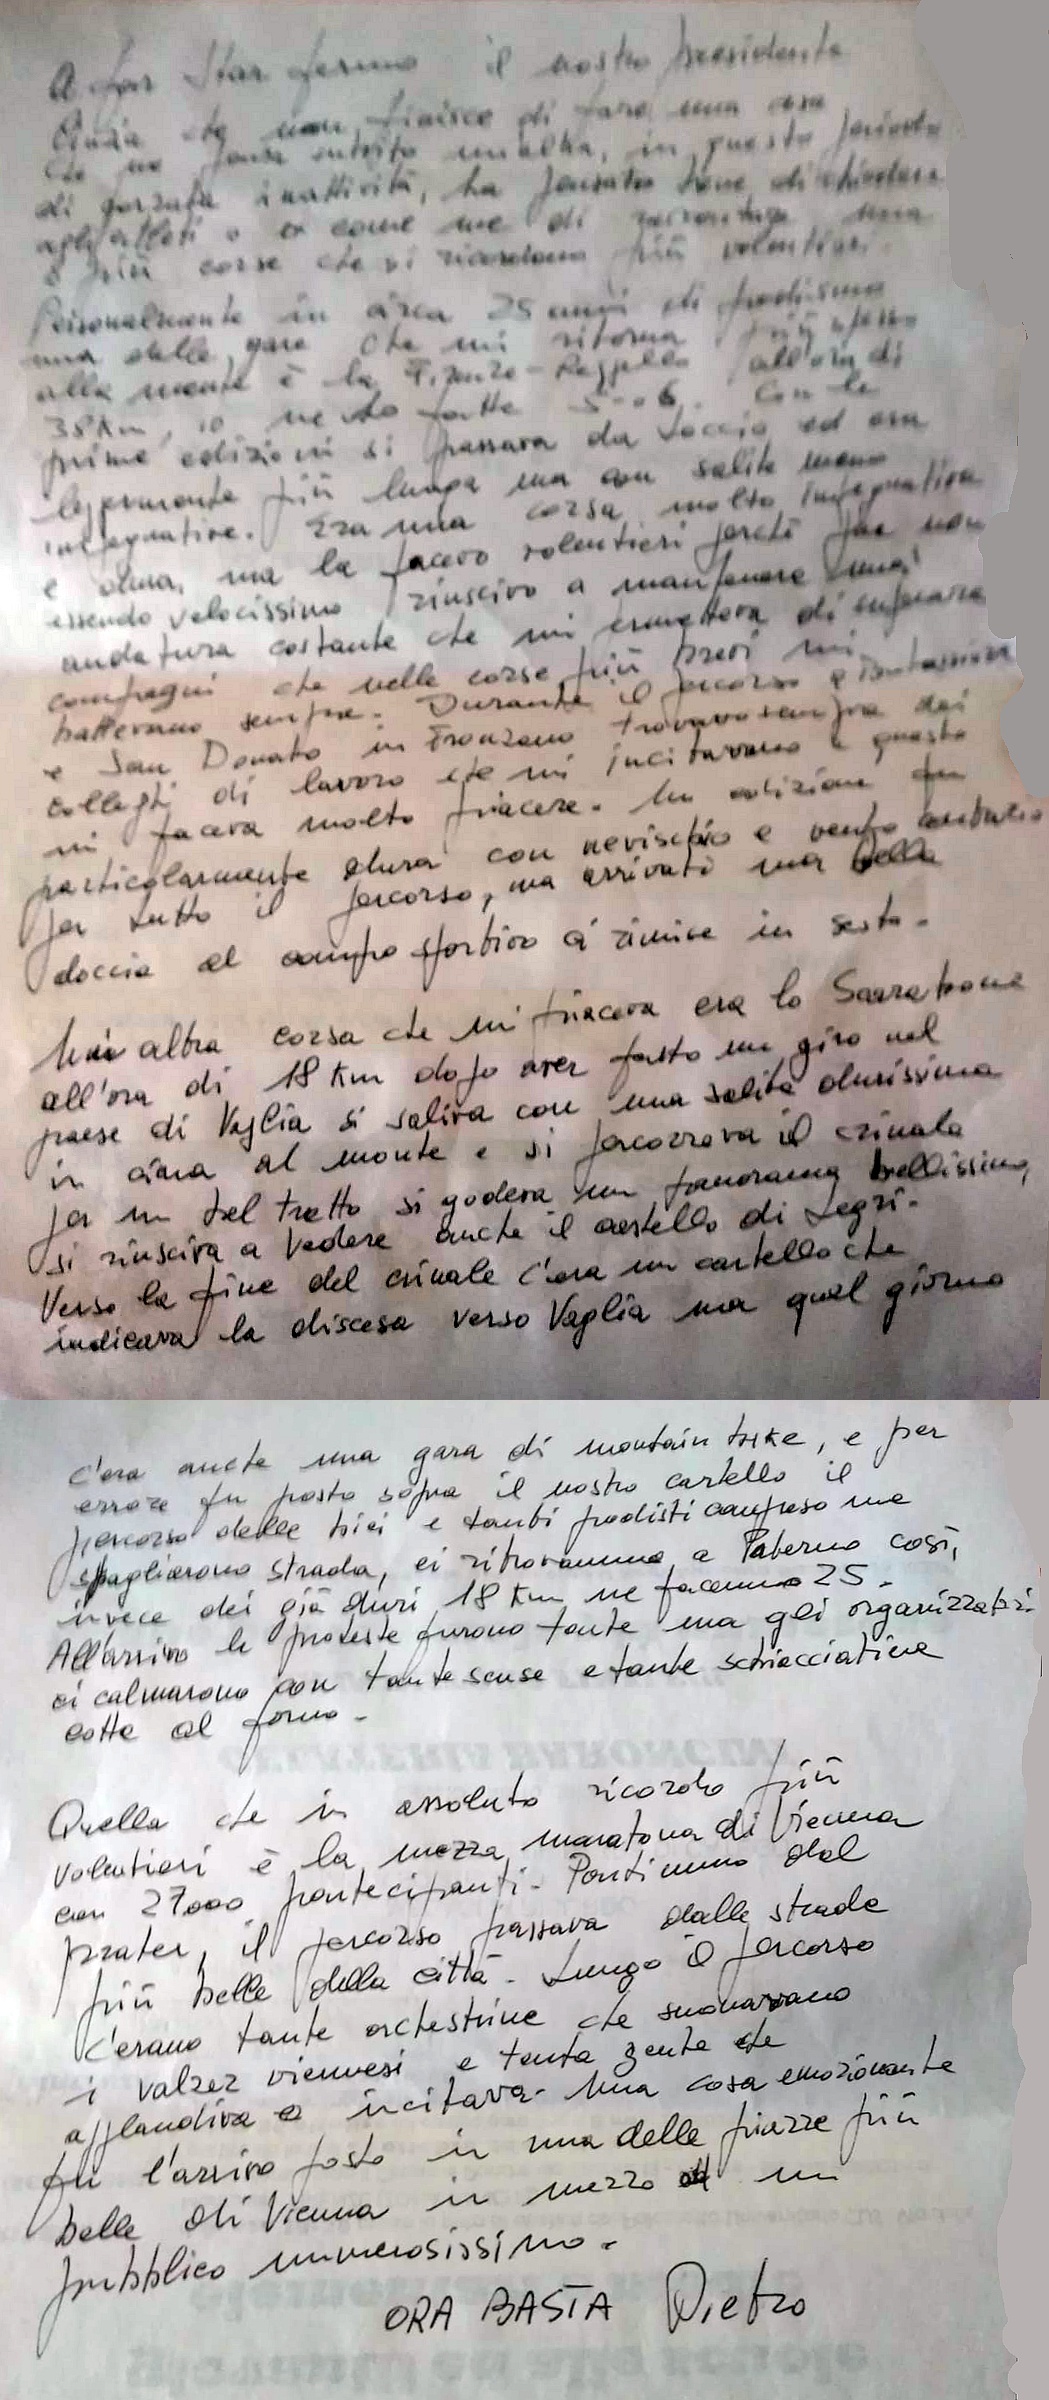 A far star fermo il nostro presidente
che non finisce di fare una cosa
che ne pensa subito un'altra, in questo periodo
di forzata inattività, ha pensato bene di chiedere
agli atleti o ex come me di raccontare una
o più corse che si ricordano più volentieri.
Personalmente in circa 25 anni di podismo
una delle gare che mi ritorna più spesso
alla mente è la Firenze-Reggello all'ora di
38 Km, io ne ho fatte 5-6. Con le
prime edizioni si passava da ed era
leggermente più lunga ma con salite meno
impegnative. Era una corsa molto impegnativa
e dura, ma la facevo volentieri perché pur non
essendo velocissimo riuscivo a mantenere una
andatura costante che mi ermetteva di superare
compagni che nelle corse più brevi mi
battevano sempre. Durante il percorso a Pontassieve
e San Donato in Fronzano trovavo sempre dei
colleghi di lavoro che mi incitavano e questo
mi faceva molto piacere. Un edizione fu
particolarmente dura con nevischio e vento contrario
per tutto il percorso, ma arrivati una bella
doccia al campo sportivo ci rimise in sesto.
Un altra corsa che mi piaceva era lo Scarabone
all'ora di 18 Km dopo aver fatto un giro nel
paese di Vaglia si saliva con una salita durissima
in cima al monte e si percorreva il crinale
per un bel tratto si godeva un panorama bellissimo,
si riusciva a vedere anche il castello di Legri.
Verso la fine del crinale c'era un cartello che
indicava la discesa verso Vaglia ma quel giorno
c'era anche una gara di montain bike, e per
errore fu posto sopra il nostro cartello il
percorso delle bici e tanti podisti compreso me
sbagliarono strada, ci ritrovammo a Paterno così,
invece dei già duri 18 Km ne facemmo 25.
All'arrivo le proteste furono tante ma gli organizzatori
ci calmarono con tante scuse e tante schiacciatine
cotte al forno.
Quella che in assoluto ricordo più
volentieri è la mezza maratona di Vienna
con 27000 partecipanti. Partimmo dal
prater, il percorso passava dalle strade
più belle della città. Lungo il percorso
c'erano tante orchestrine che suonavano
i valzer viennesi e tanta gente che
applaudiva e incitava. Una cosa emozionante
fu l'arrivo posto in una delle piazze più
belle di Vienna in mezzo ad un
pubblico numerosissimo.
ORA BASTA Pietro